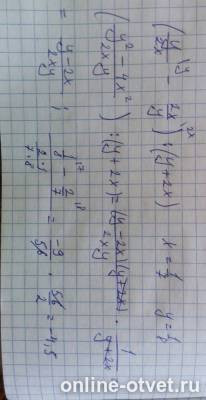 (y/2x \y - 2x/y \2x) : (y+2x) x = 1/7 y = 1/8
(y² - 4x² / 2xy) : (y+2x) = (y-2x)(y+2x) / 2xy · 1 / y+2x
= y-2x / 2xy ; 1/8 \7 - 2/7 \8 / 2·1 / 7·8 = -9/56 · 56/2 = -4,5
online-otvet.ru